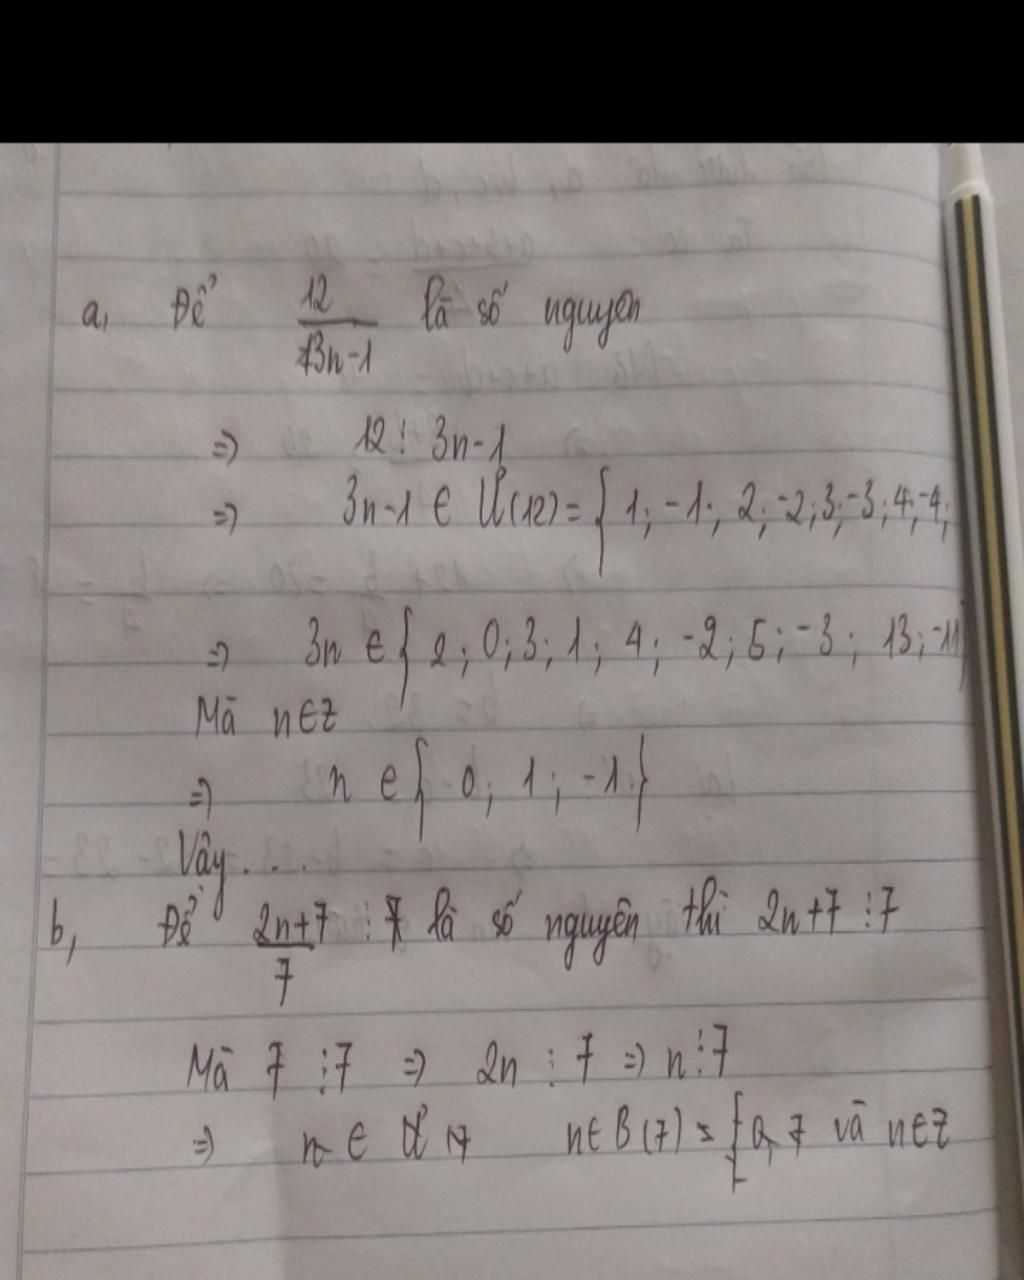 a, Để 12/3n-1 là số nguyên
=> 12 ⋮ 3n-1
=> 3n-1 ∈ Ư(12) = { 1; -1; 2; -2; 3; -3; 4; -4;
=> 3n ∈ { 2; 0; 3; 1; 4; -2; 5; -3; 13; -11}
Mà n∈Z
=> n ∈ { 0; 1; -1 }
Vậy . . .
b, Để 2n+7/7 ⋮ 7 là số nguyên thì 2n+7 ⋮ 7
Mà 7 ⋮ 7 => 2n ⋮ 7 => n ⋮ 7
=> n ∈ Ư n∈B(7) = { 0, 7 và n∈Z